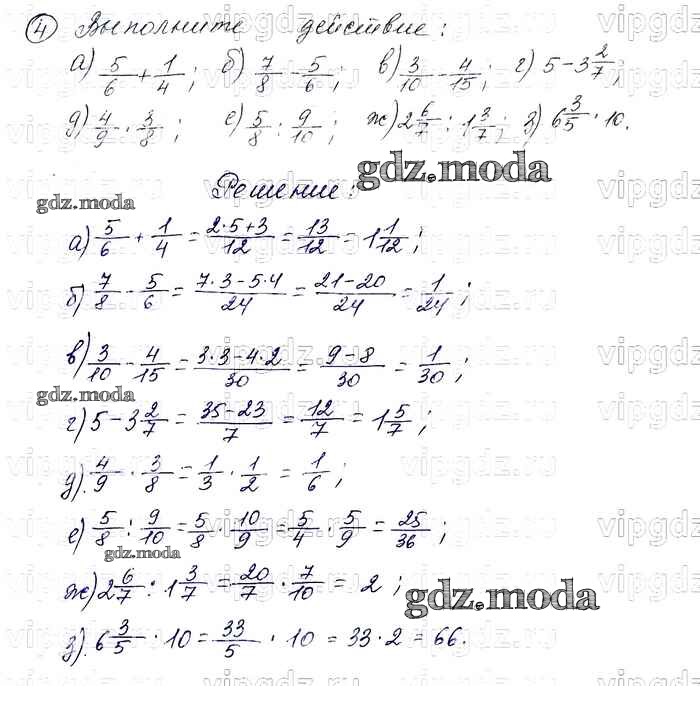 ④ Выполните действие:
а) 5/6 + 1/4; б) 7/8 - 5/6; в) 3/10 - 4/15; г) 5 - 3 2/7;
д) 4/9 · 3/8; е) 5/8 : 9/10; ж) 2 6/7 : 1 3/7; з) 6 3/5 · 10.
gdz.moda
Решение:
gdz.moda
а) 5/6 + 1/4 = 2·5+3/12 = 13/12 = 1 1/12;
б) 7/8 - 5/6 = 7·3-5·4/24 = 21-20/24 = 1/24;
в) 3/10 - 4/15 = 3·3-4·2/30 = 9-8/30 = 1/30;
gdz.moda
г) 5 - 3 2/7 = 35-23/7 = 12/7 = 1 5/7;
д) 4/9 · 3/8 = 1/3 · 1/2 = 1/6;
е) 5/8 : 9/10 = 5/8 · 10/9 = 5/4 · 5/9 = 25/36;
gdz.moda
ж) 2 6/7 : 1 3/7 = 20/7 · 7/10 = 2;
gdz.moda
з) 6 3/5 · 10 = 33/5 · 10 = 33·2 = 66.